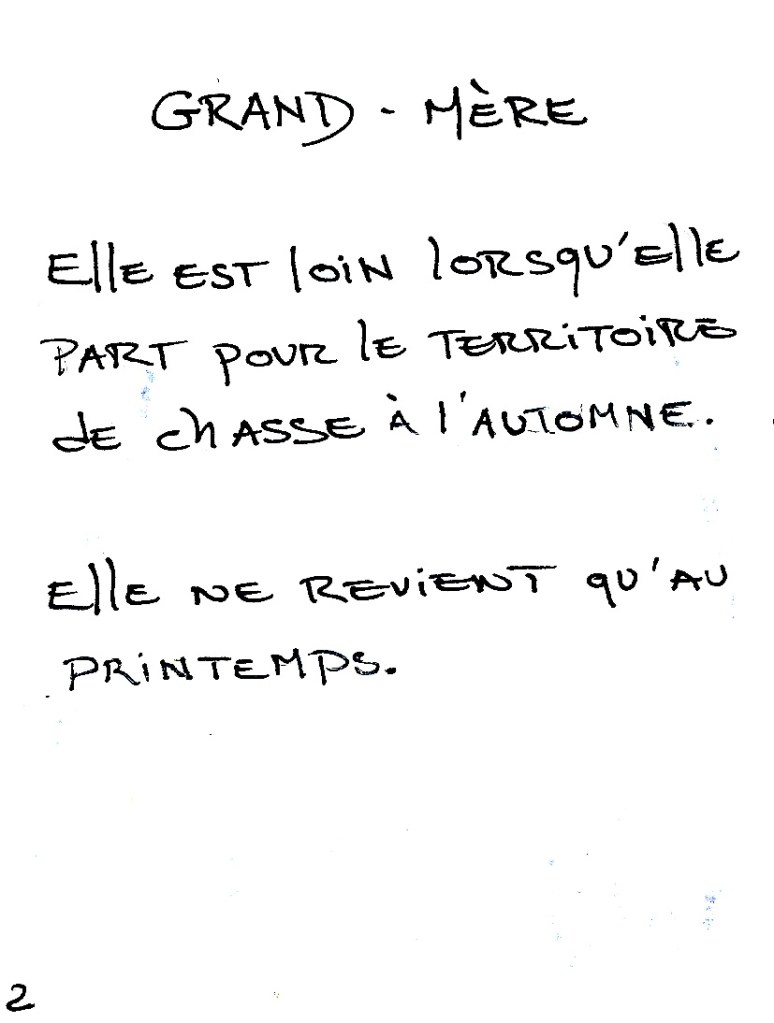 GRAND - MÈRE
Elle EST loiN lORSqU'Elle
PART pOUR lE TERRiTOiRE
dE chASSE À l'AUTOMNE.
Elle NE REViENT qU'AU
PRiNTEMPS.
2